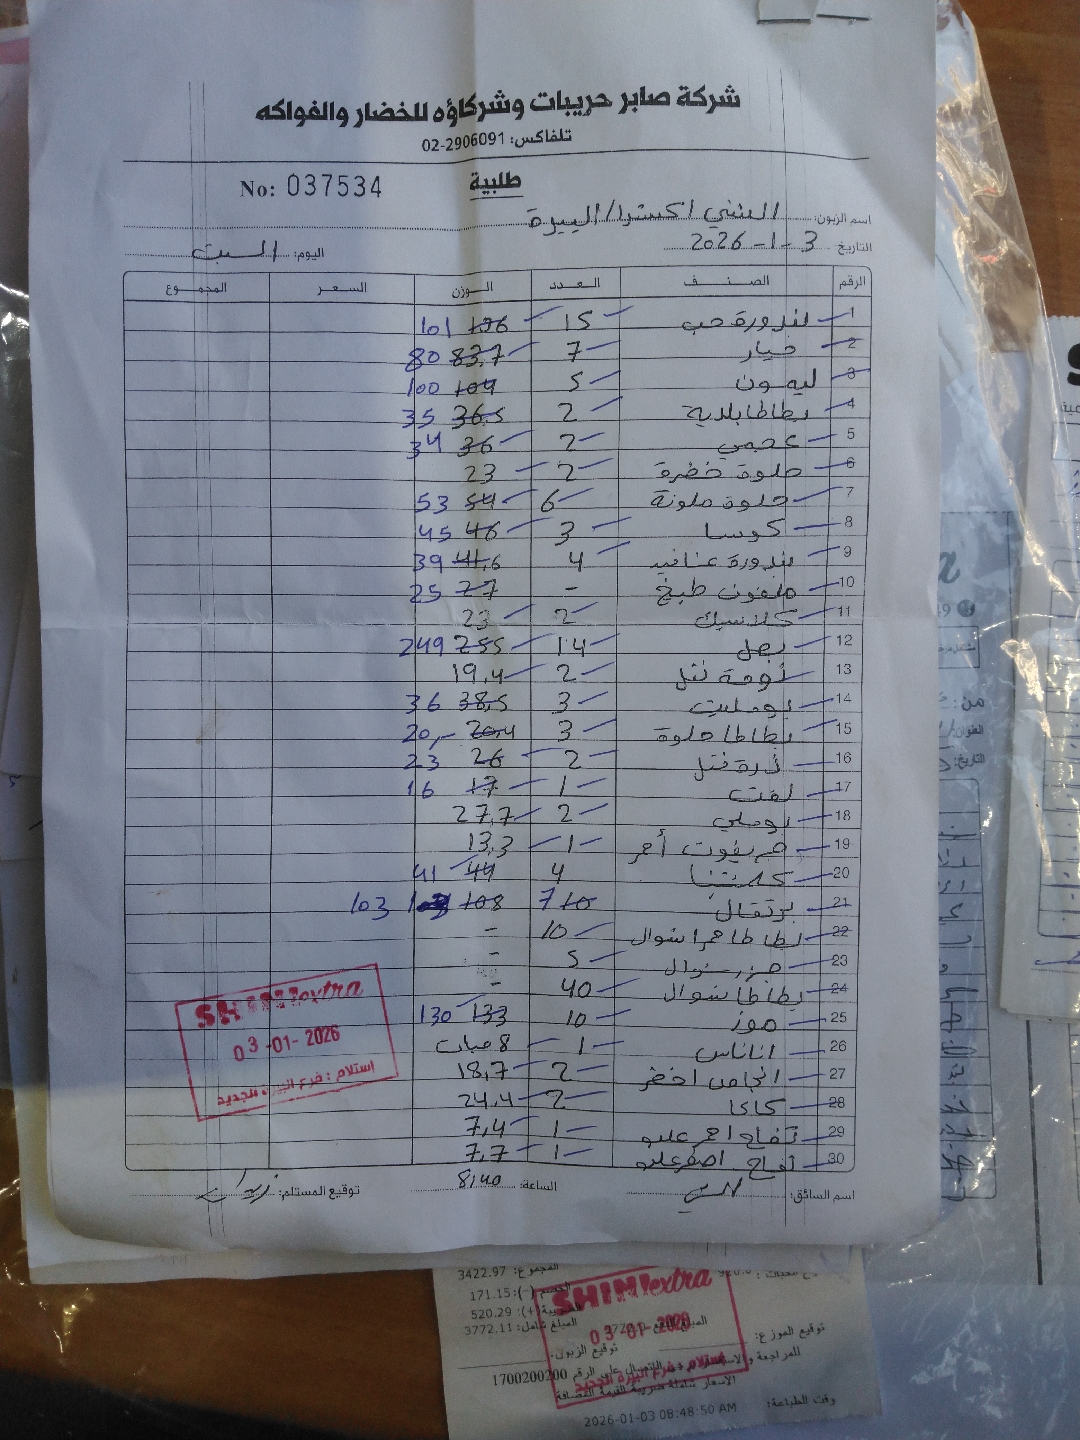 شركة صابر حريبات وشركاؤه للخضار والفواكه
تلفاكس: 02-2906091
طلبية
No: 037534
اسم الزبون: الشني اكسترا/البيرة
التاريخ 3-1-2026
اليوم: السبت
الرقم الصنف العدد الوزن السعر المجموع
1 بندورة حب 15 106 101
2 خيار 7 83,7 80
3 ليمون 5 104 100
4 بطاطا بلدية 2 36,5 35
5 عجمي 2 36 34
6 حلوة خضرة 2 23
7 حلوة ملونة 6 54 53
8 كوسا 3 46 45
9 بندورة عناقيد 4 41,6 39
10 ملفوف طبخ - 27 25
11 كلاسيك 2 23
12 بصل 14 255 249
13 ثومة نتل 2 19,4
14 بوملیت 3 38,5 36
15 بطاطا حلوة 3 20,4 20,-
16 ذرة نتل 2 26 23
17 لفت 1 17 16
18 بوملي 2 27,7
19 جريفوت أحمر 1 13,3
20 كلمنتينا 4 44 41
21 برتقال 10 7 108 103
22 بطاطا حمرا شوال 10 -
23 جزر شوال 5 -
24 بطاطا شوال 40 -
25 موز 10 133 130
26 اناناس 1 8 حبات
27 انجاص اخضر 2 18,7
28 كاكا 2 24,4
29 تفاح احمر علبو 1 7,4
30 تفاح اصفر علبو 1 7,7
اسم السائق:
الساعة: 8,40
توقيع المستلم:
SHINI extra
03-01-2026
استلام : فرع البيرة الجديد
المجموع: 3422.97
الخصم (-): 171.15
الضريبة (+): 520.29
المبلغ شامل: 3772.11
SHINI extra
03-01-2026
استلام : فرع البيرة الجديد
توقيع الموزع:
توقيع الزبون:
للمراجعة والاستفسار يرجى الاتصال على الرقم 1700200200
الاسعار شاملة ضريبة القيمة المضافة
وقت الطباعة: 2026-01-03 08:48:50 AM
من:
العنوان:
التاريخ: